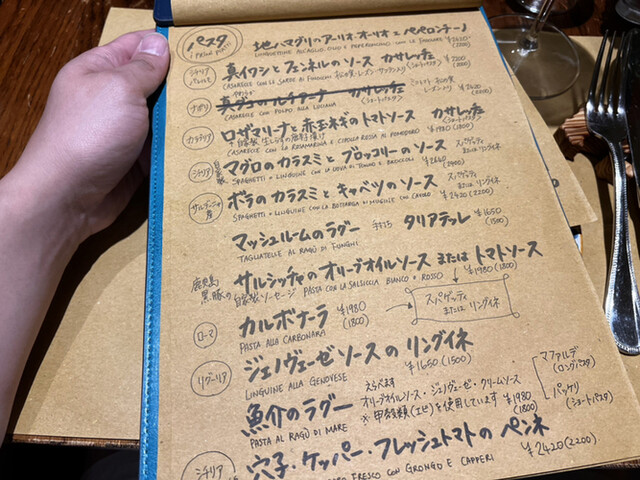 パスタ
I PRIMI PIATTI
地ハマグリのアーリオ・オーリオとペペロンチーノ
LINGUINE ALL'AGLIO, OLIO E PEPERONCINO CON LE VONGOLE ¥2420 (2200)
シチリア
真イワシとフェンネルのソース カサレッチェ
CASARECCE CON LE SARDE DI FINOCCHI
(ショートパスタ)
ナポリ
真ダコのルチアーナ カサレッチェ
CASARECCE CON POLPO ALLA LUCIANA
(ショートパスタ)
カラブリア
ロザマリーナと赤玉ネギのトマトソース カサレッチェ
CASARECCE CON LA ROSAMARINA E CIPOLLA ROSSA AL POMODORO ¥1980 (1800)
(ショートパスタ)
シチリア
マグロのカラスミとブロッコリーのソース
スパゲッティ または リングイネ
SPAGHETTI o LINGUINE CON LA UOVA DI TONNO E BROCCOLI
サルデーニャ
ボラのカラスミとキャベツのソース
スパゲッティ または リングイネ
SPAGHETTI o LINGUINE CON LA BOTTARGA DI MUGGINE CON CAVOLO ¥2420 (2200)
マッシュルームのラグー 手打ち タリアテッレ ¥1650 (1500)
TAGLIATELLE AL RAGÙ DI FUNGHI
鹿児島 黒豚の
サルシッチャのオリーブオイルソース または トマトソース
自家製ソーセージ PASTA CON LA SALSICCIA BIANCO o ROSSO ¥1980 (1800)
ローマ
カルボナーラ ¥1980 (1800)
PASTA ALLA CARBONARA
スパゲッティ または リングイネ
リグーリア
ジェノヴェーゼソースの リングイネ
LINGUINE ALLA GENOVESE ¥1650 (1500)
魚介のラグー
えらべます
オリーブオイルソース・ジェノヴェーゼ・クリームソース
※ 甲殻類(エビ)を使用しています ¥1980 (1800)
PASTA AL RAGÙ DI MARE
マファルデ (ロングパスタ)
パッケリ (ショートパスタ)
シチリア
穴子・ケッパー・フレッシュトマトの ペンネ
FRESCO CON GRONGO E CAPPERI ¥2420 (2200)